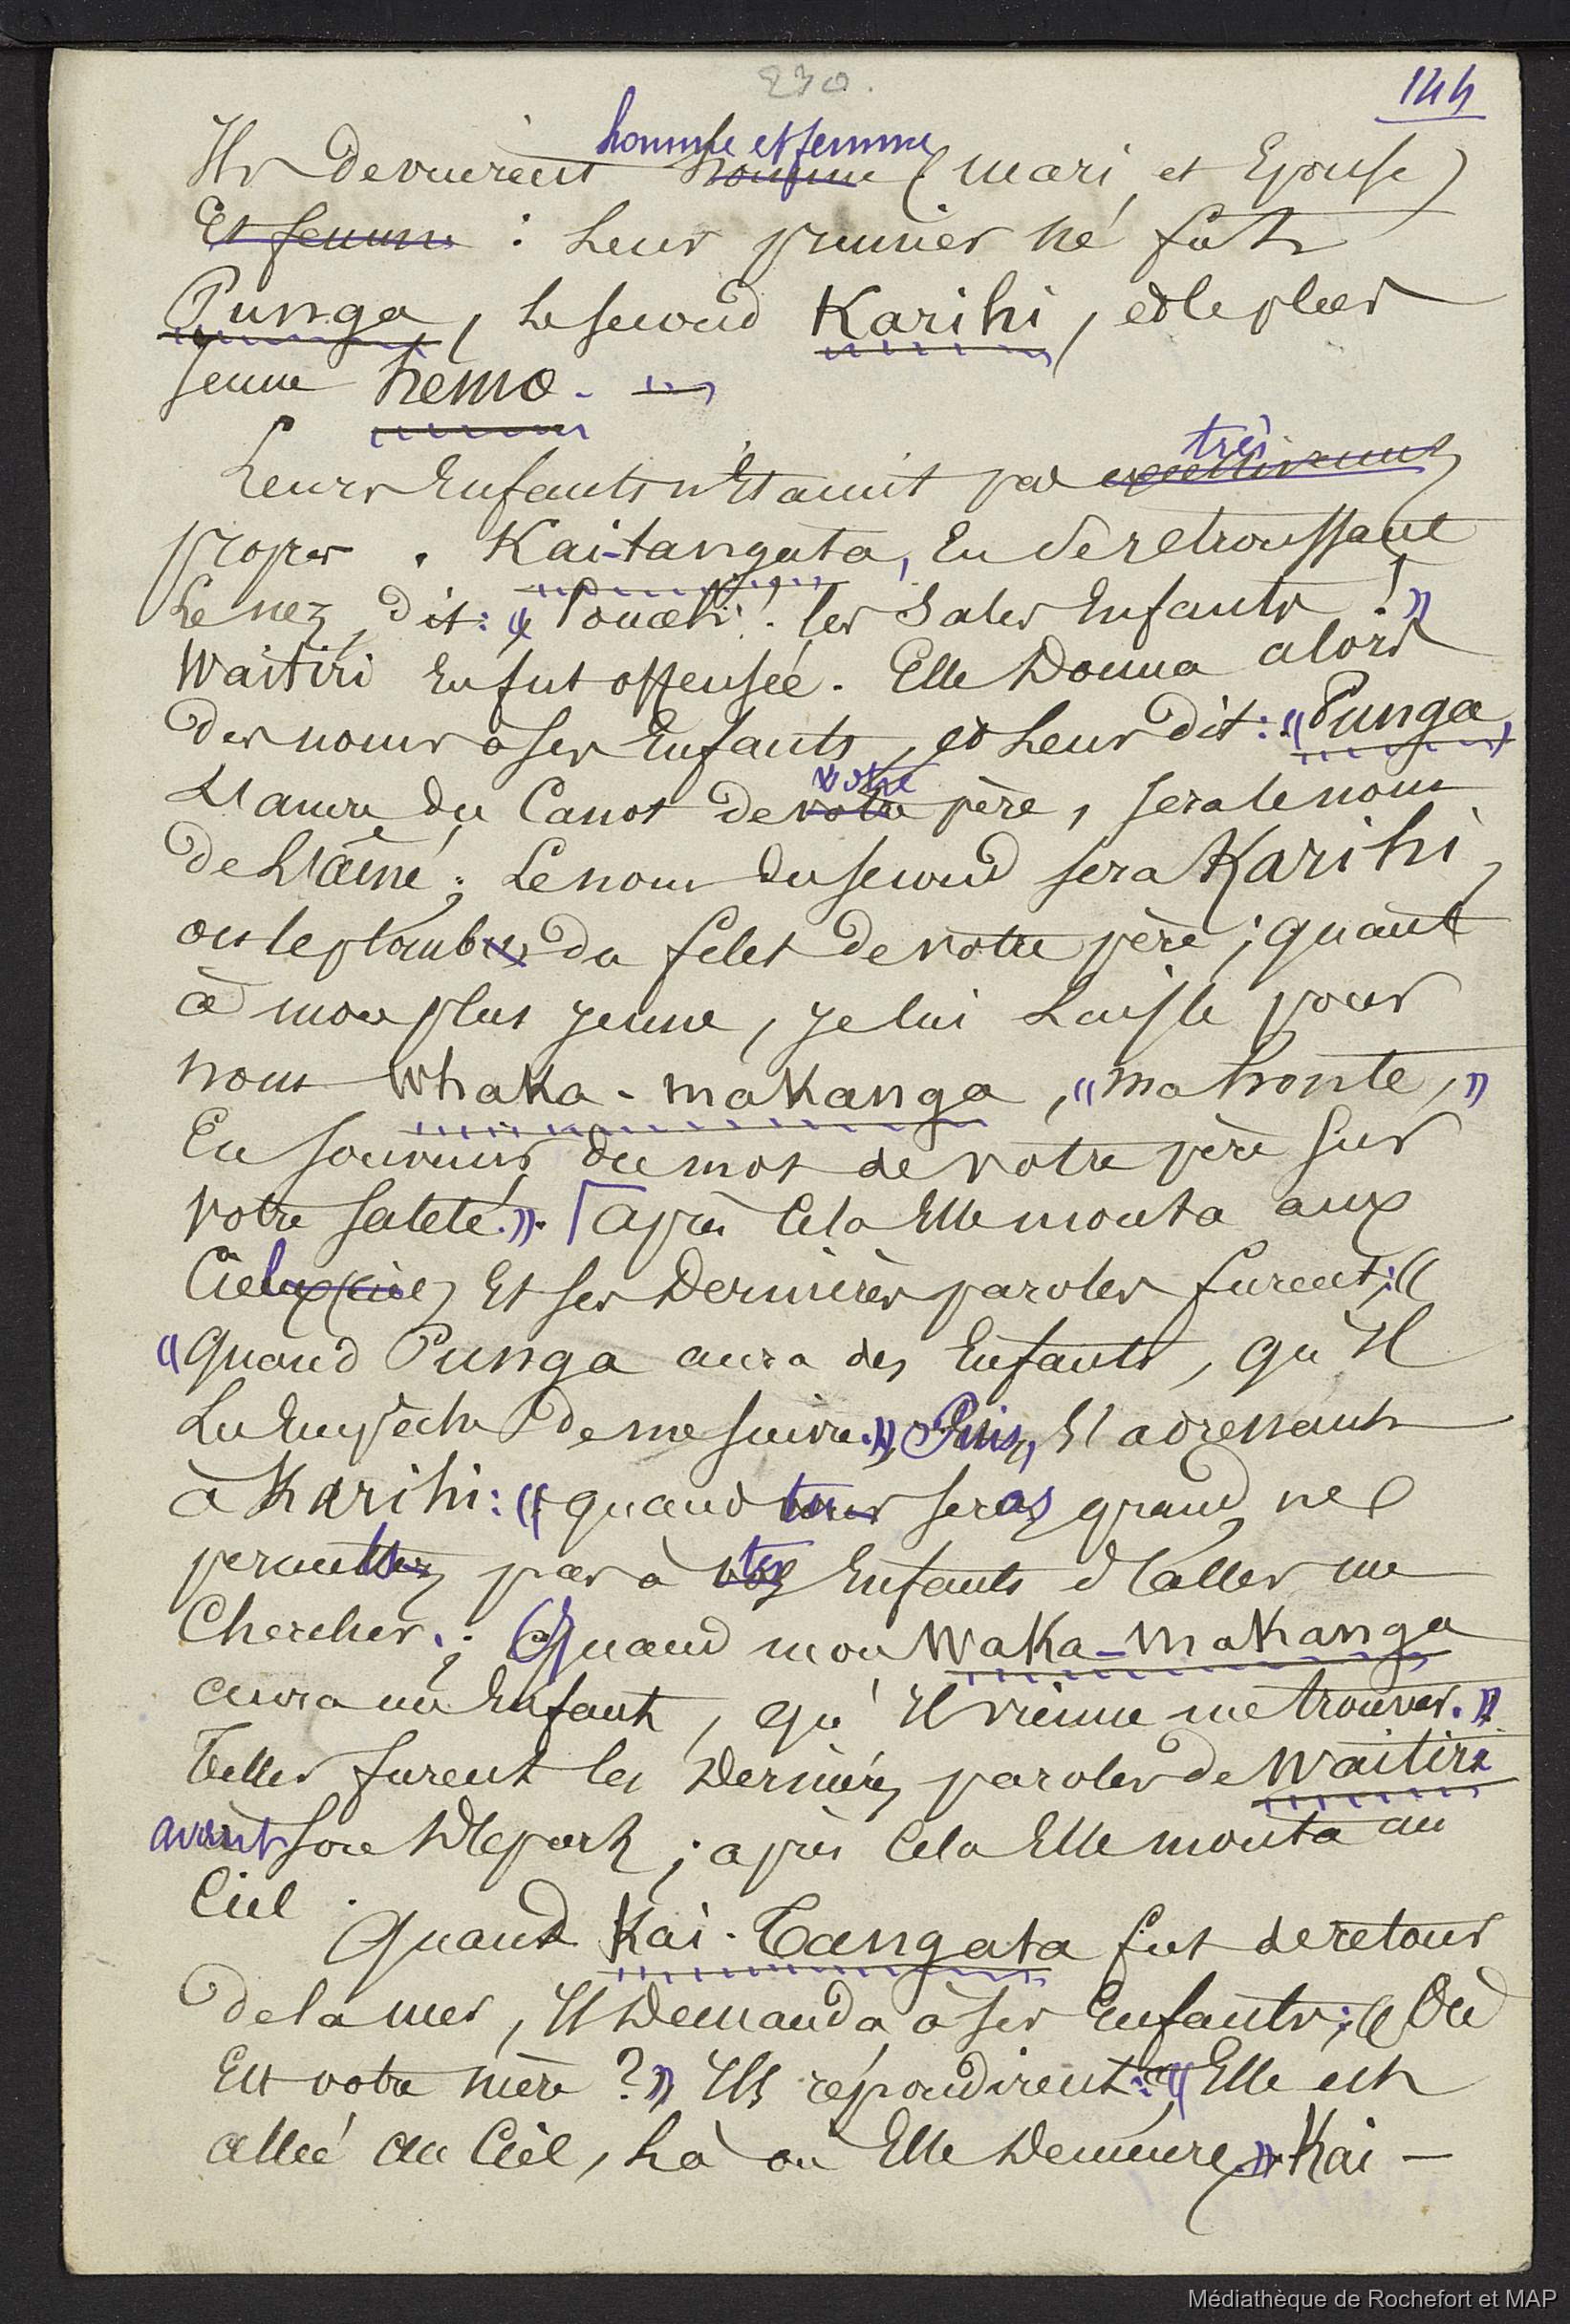 230.
144
homme et femme
Ils devinrent homme (mari et Epouse)
Et femme : Leur premier né fût
Punga, Le second Karihi, et le plus
jeune hémo. —
très
Leurs Enfants n'Etaient pas excessivement
propres. Kai-tangata, En se retroussant
Le nez, dit: « Pouah! les Sales Enfants! »
Waitiri En fut offensée. Elle Donna alors
Des noms à ses Enfants, et Leur dit: « Punga,
votre
L'ancre du Canot de votre père, sera le nom
De L'aîné; Le nom du second sera Karihi,
ou le plomb du filet de votre père; quant
à mon plus jeune, je lui Laisse pour
nom Whaka-makanga, « ma honte, »
En souvenir du mot de votre père sur
votre saleté. ». Après Cela Elle monta aux
Ciel Et ses Dernières paroles furent: «
« Quand Punga aura des Enfants, qu'Il
Les Empêche De me suivre. » Puis, S'adressant
à Karihi: « quand tu seras grand, ne
permets pas à tes Enfants d'aller me
Chercher.; Quand mon Waka-makanga
aura un Enfant, qu'Il vienne me trouver. »
Telles furent les Dernières paroles de Waitiri
avant son Départ; après Cela Elle monta au
Ciel.
Quand Kai-Tangata fut de retour
De la mer, Il Demanda à ses Enfants: « Où
Est votre mère? » Ils répondirent: « Elle est
allée au Ciel, Là où Elle Demeure. » Kai —
Médiathèque de Rochefort et MAP